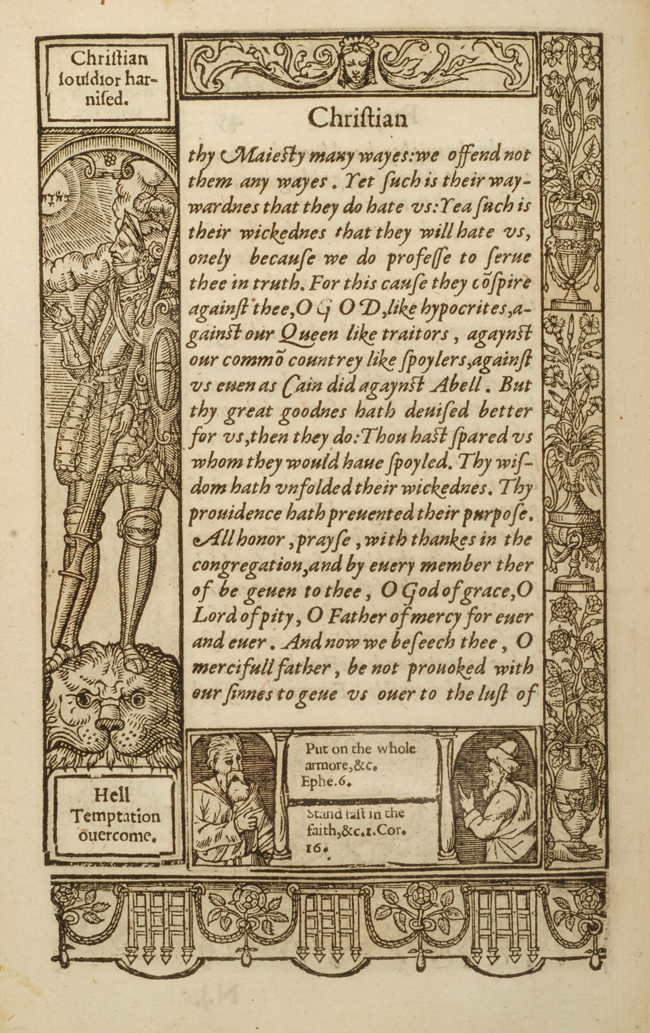 Chriſtian
ſouldior har-
niſed.
Chriſtian
thy Maieſty many wayes:we offend not
them any wayes . Yet ſuch is their way-
wardnes that they do hate vs:Yea ſuch is
their wickednes that they will hate vs,
onely becauſe we do profeſſe to ſerue
thee in truth. For this cauſe they cõſpire
againſt thee,O G O D,like hypocrites,a-
gainſt our Queen like traitors , agaynſt
our commõ countrey like ſpoylers,againſt
vs euen as Cain did agaynſt Abell . But
thy great goodnes hath deuiſed better
for vs,then they do:Thou haſt ſpared vs
whom they would haue ſpoyled. Thy wiſ-
dom hath vnfolded their wickednes. Thy
prouidence hath preuented their purpoſe.
All honor ,prayſe , with thankes in the
congregation,and by euery member ther
of be geuen to thee , O God of grace,O
Lord of pity, O Father of mercy for euer
and euer . And now we beſeech thee , O
mercifull father , be not prouoked with
our ſinnes to geue vs ouer to the luſt of
Hell
Temptation
ouercome.
Put on the whole
armore,&c.
Ephe.6.
Stand faſt in the
faith,&c.1.Cor.
16.